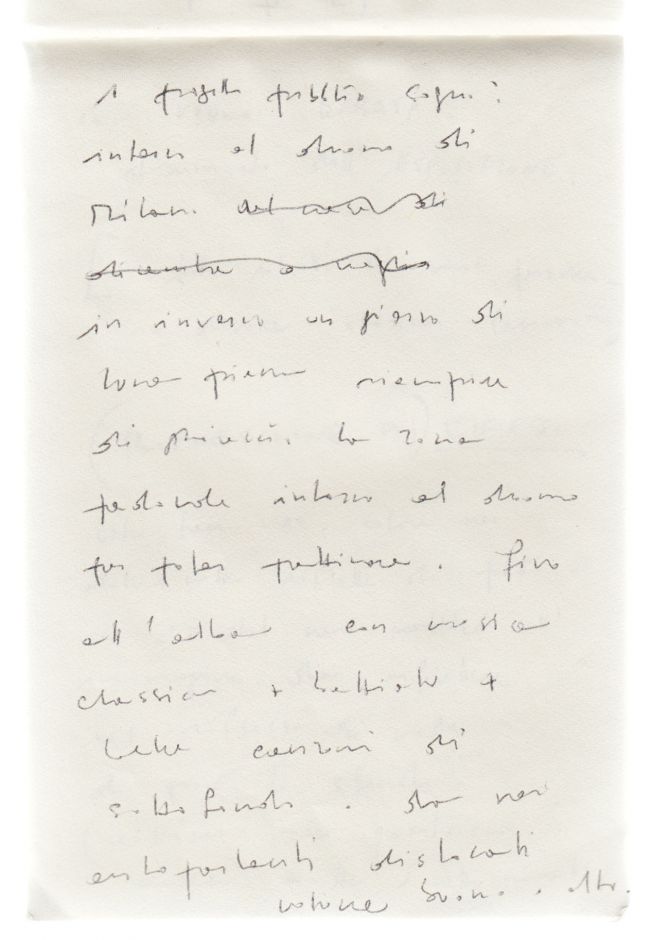 1 progetto pubblico sogni:
intorno al duomo di
Milano. del mese di
dicembre o
in inverno un giorno di
luna piena riempire
di ghiaccio. la zona
pedonale intorno al duomo
per poter pattinare. fino
all'alba con musica
classica + battiato +
belle canzoni di
sottofondo. da vari
autoparlanti dislocati
volume buono. alto.